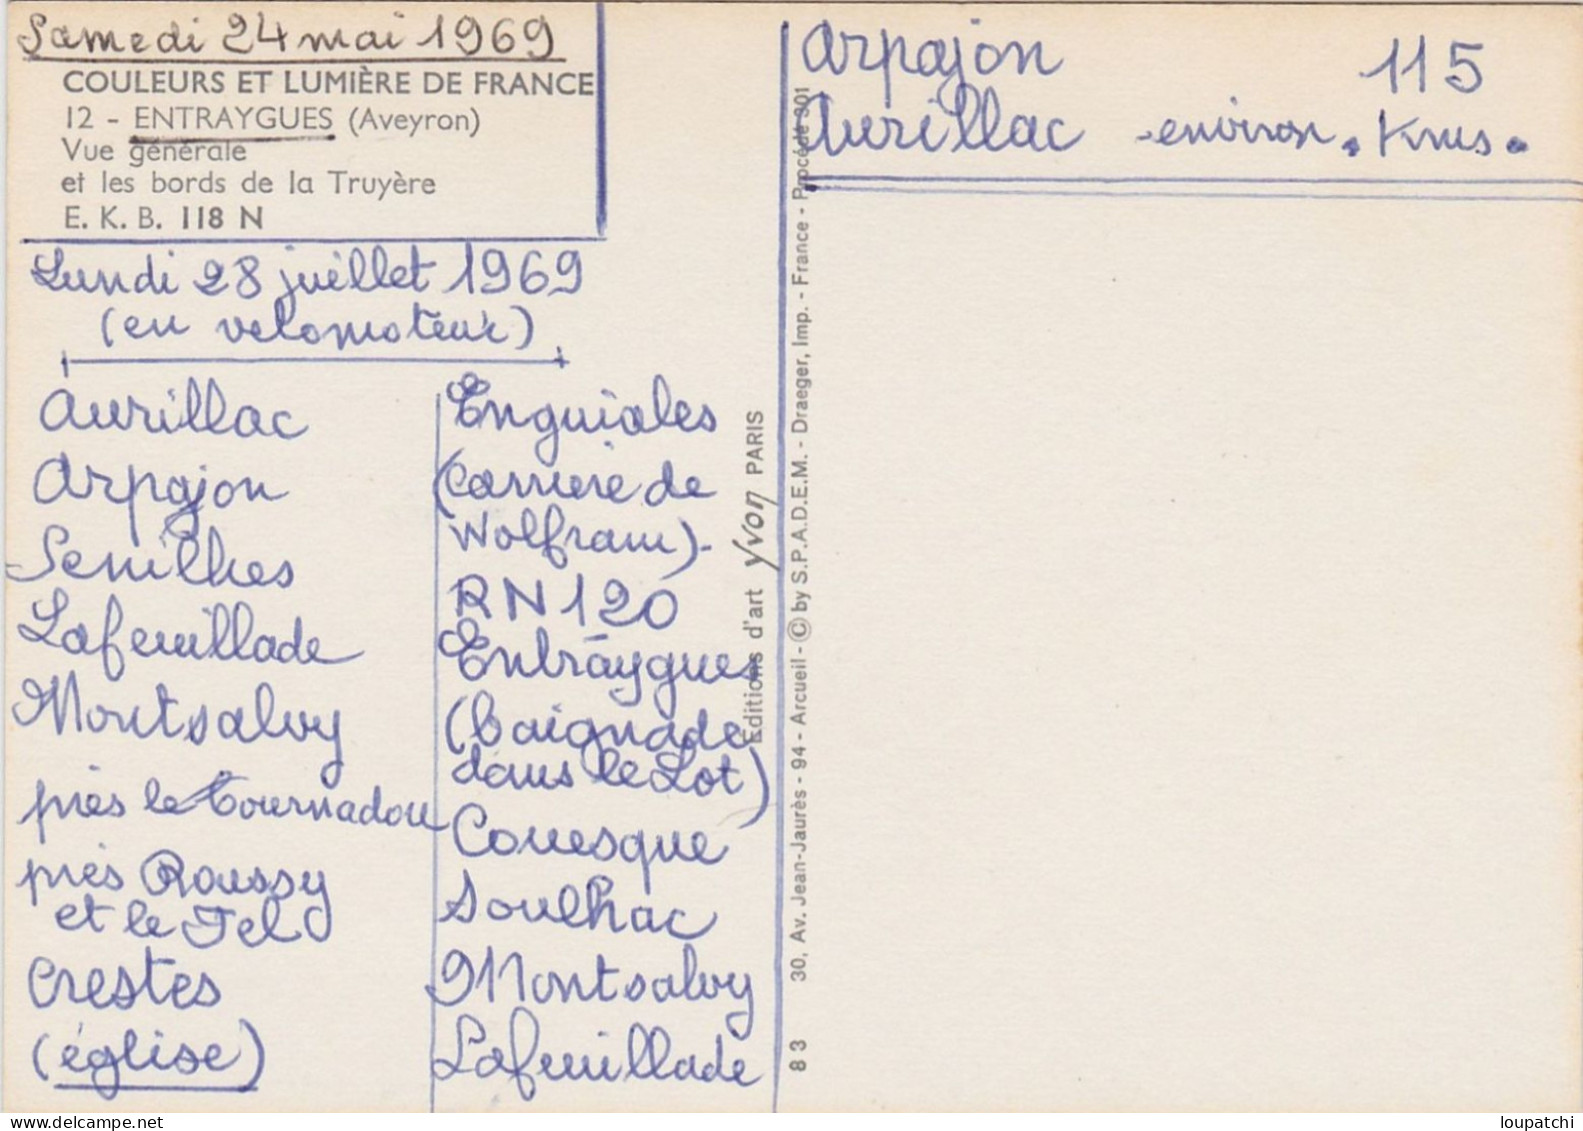 Samedi 24 mai 1969
COULEURS ET LUMIÈRE DE FRANCE
12 - ENTRAYGUES (Aveyron)
Vue générale
et les bords de la Truyère
E. K. B. 118 N
Lundi 28 juillet 1969
(en velomoteur)
Aurillac
Arpajon
Senilhes
Lafeuillade
Montsalvy
près le Tournadou
près Roussy
et le Fel
Crestes
(église)
Enguiales
(Carrière de
Wolfram).
RN 120
Entraygues
(baignade
dans le Lot)
Couesque
Soulhac
Montsalvy
Lafeuillade
Editions d'art Yvon PARIS
83 30, Av. Jean-Jaurès - 94 - Arcueil - © by S.P.A.D.E.M. - Draeger, Imp. - France - Procédé 301
Arpajon 115
Aurillac environ . Kms.
www.delcampe.net
loupatchi